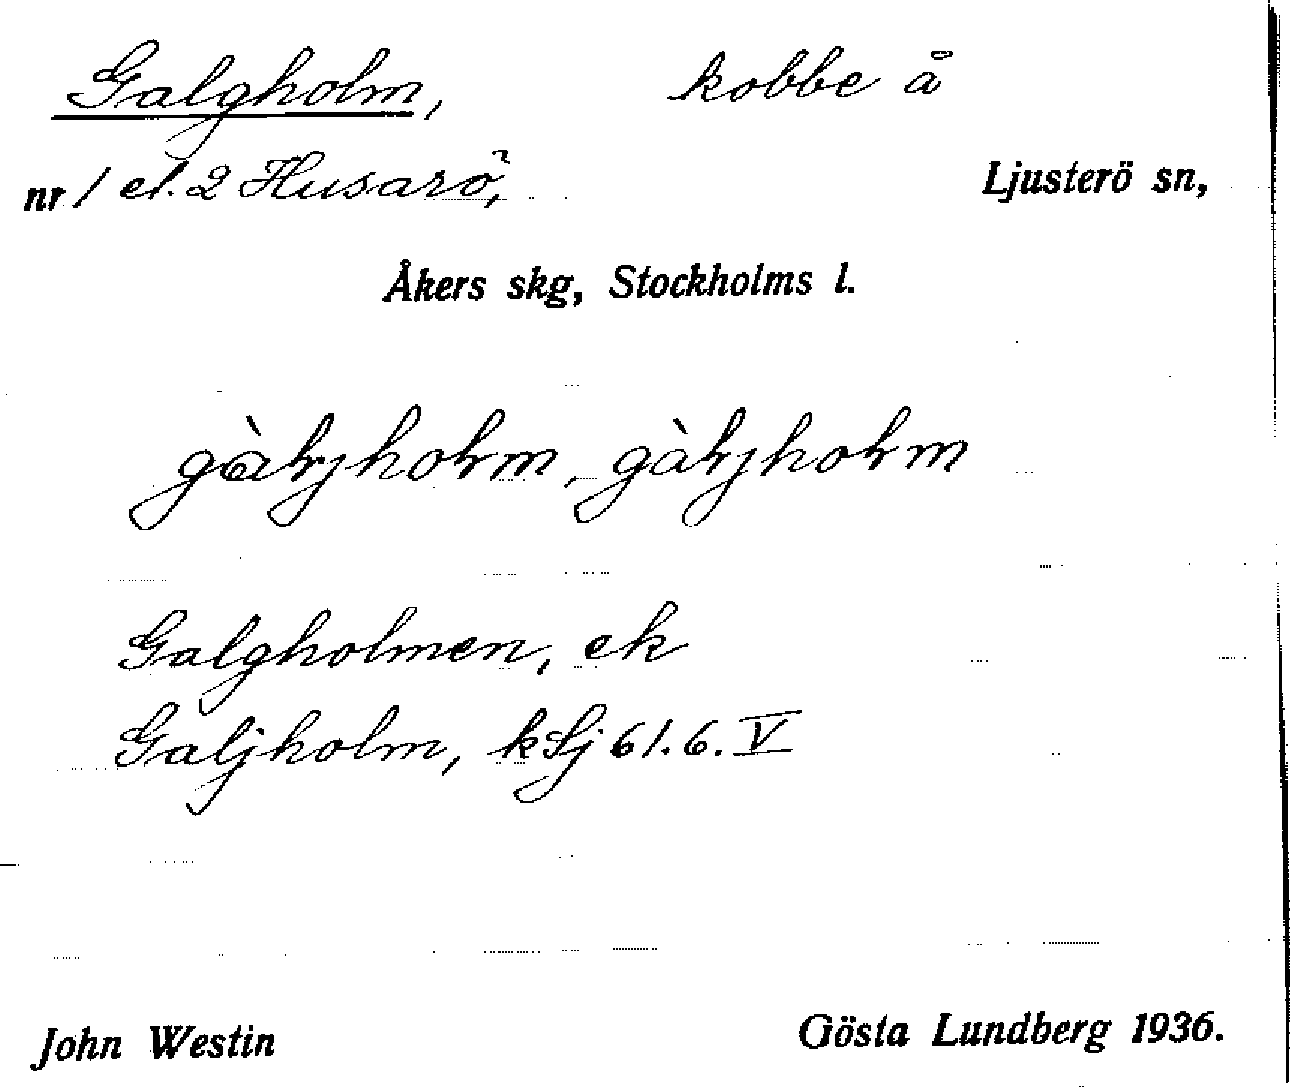 Galgholm, kobbe å
nr 1 el. 2 Husarö, Ljusterö sn,
Åkers skg, Stockholms l.
gàlʒholm, gàlʒholm
Galgholmen, ek
Galjholm, kSj 61.6. V
John Westin Gösta Lundberg 1936.